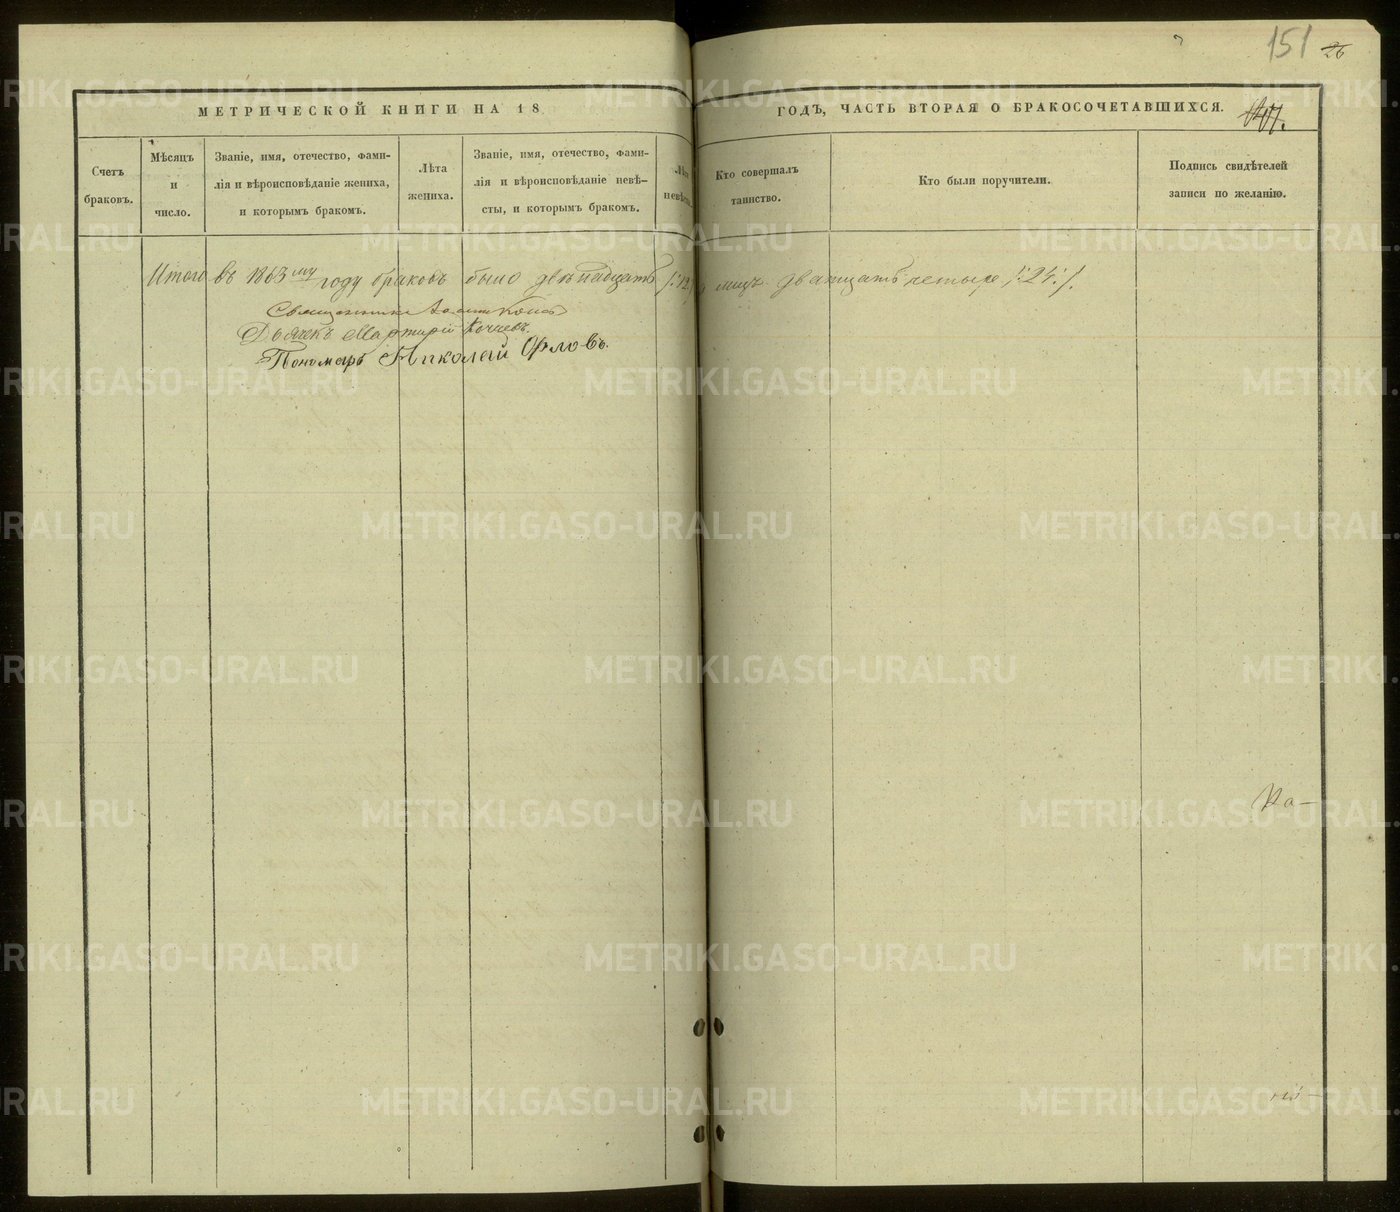 151 26
МЕТРИЧЕСКОЙ КНИГИ НА 18
ГОДЪ, ЧАСТЬ ВТОРАЯ О БРАКОСОЧЕТАВШИХСЯ.
Счетъ
браковъ.
Мѣсяцъ
и
число.
Званіе, имя, отечество, фами-
лія и вѣроисповѣданіе жениха,
и которымъ бракомъ.
Лѣта
жениха.
Званіе, имя, отечество, фами-
лія и вѣроисповѣданіе невѣ-
сты, и которымъ бракомъ.
Лѣта
невѣсты.
Кто совершалъ
таинство.
Кто были поручители.
Подпись свидѣтелей
записи по желанію.
Итого въ 1863му году браковъ было двѣнадцать /:12:/ лицъ двадцать четыре /:24:/.
Священникъ
Дьячекъ Мартирій
Пономарь Николай Орловъ.
Ра-
METRIKI.GASO-URAL.RU